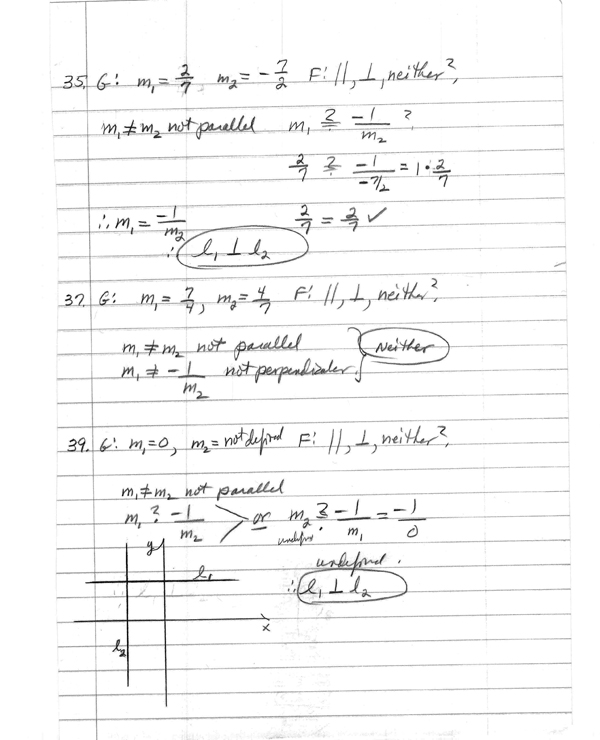 35. G: m₁ = 2/7 m₂ = -7/2 F: ||, ⊥, neither?,
m₁ ≠ m₂ not parallel m₁ ?= -1/m₂ ?
2/7 ?= -1/-7/2 = 1·2/7
∴ m₁ = -1/m₂ 2/7 = 2/7 ✓
∴ l₁ ⊥ l₂
37. G: m₁ = 7/4, m₂ = 4/7 F: ||, ⊥, neither?,
m₁ ≠ m₂ not parallel } Neither
m₁ ≠ -1/m₂ not perpendicular.
39. G: m₁ = 0, m₂ = not defined F: ||, ⊥, neither?,
m₁ ≠ m₂ not parallel
m₁ ? -1/m₂ > or m₂ ?= -1/m₁ = -1/0
undefined
y undefined.
l₁ ∴ l₁ ⊥ l₂
x
l₂